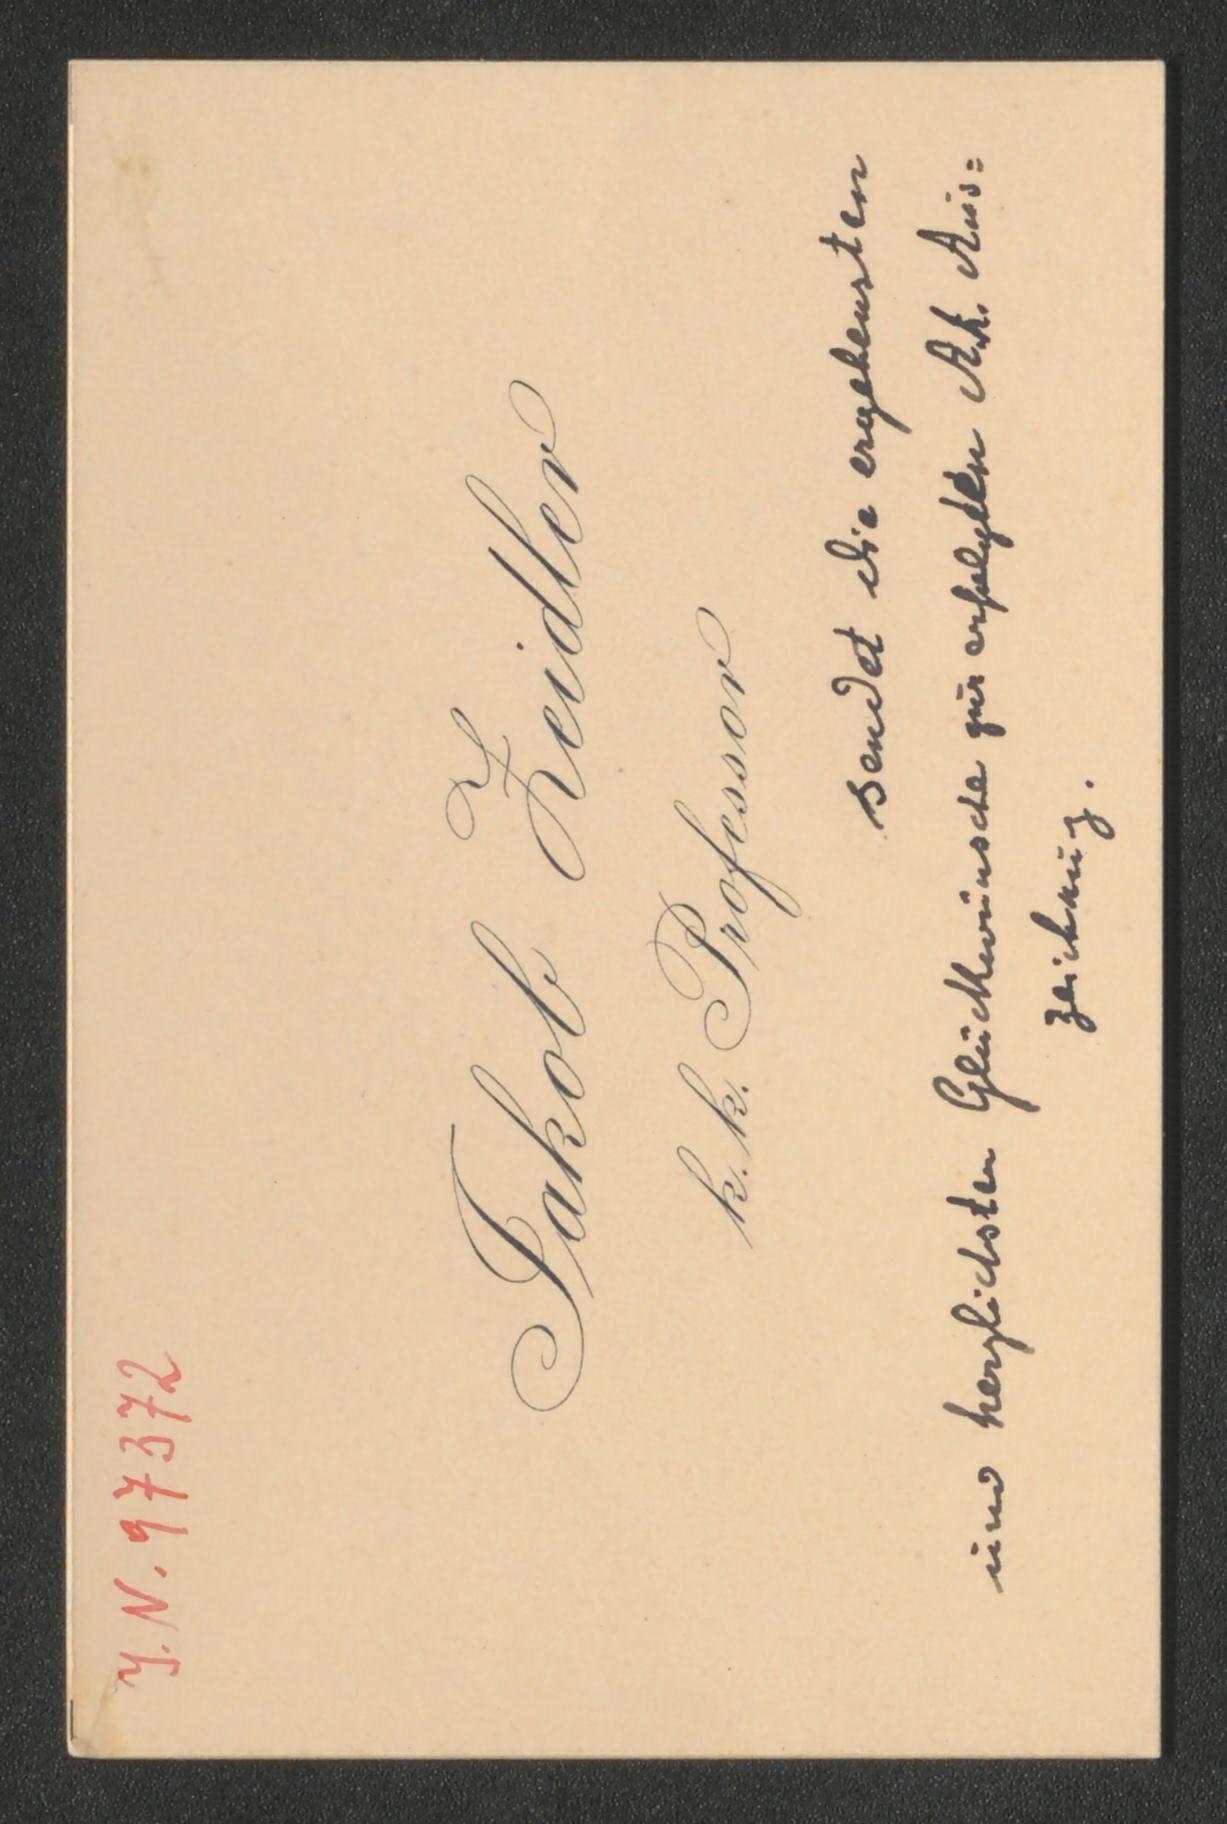 J.N. 97372
Jakob Zeidler
k. k. Professor
sendet die ergebensten
und herzlichsten Glückwünsche zur erfolgten Ah. Aus=
zeichnung.